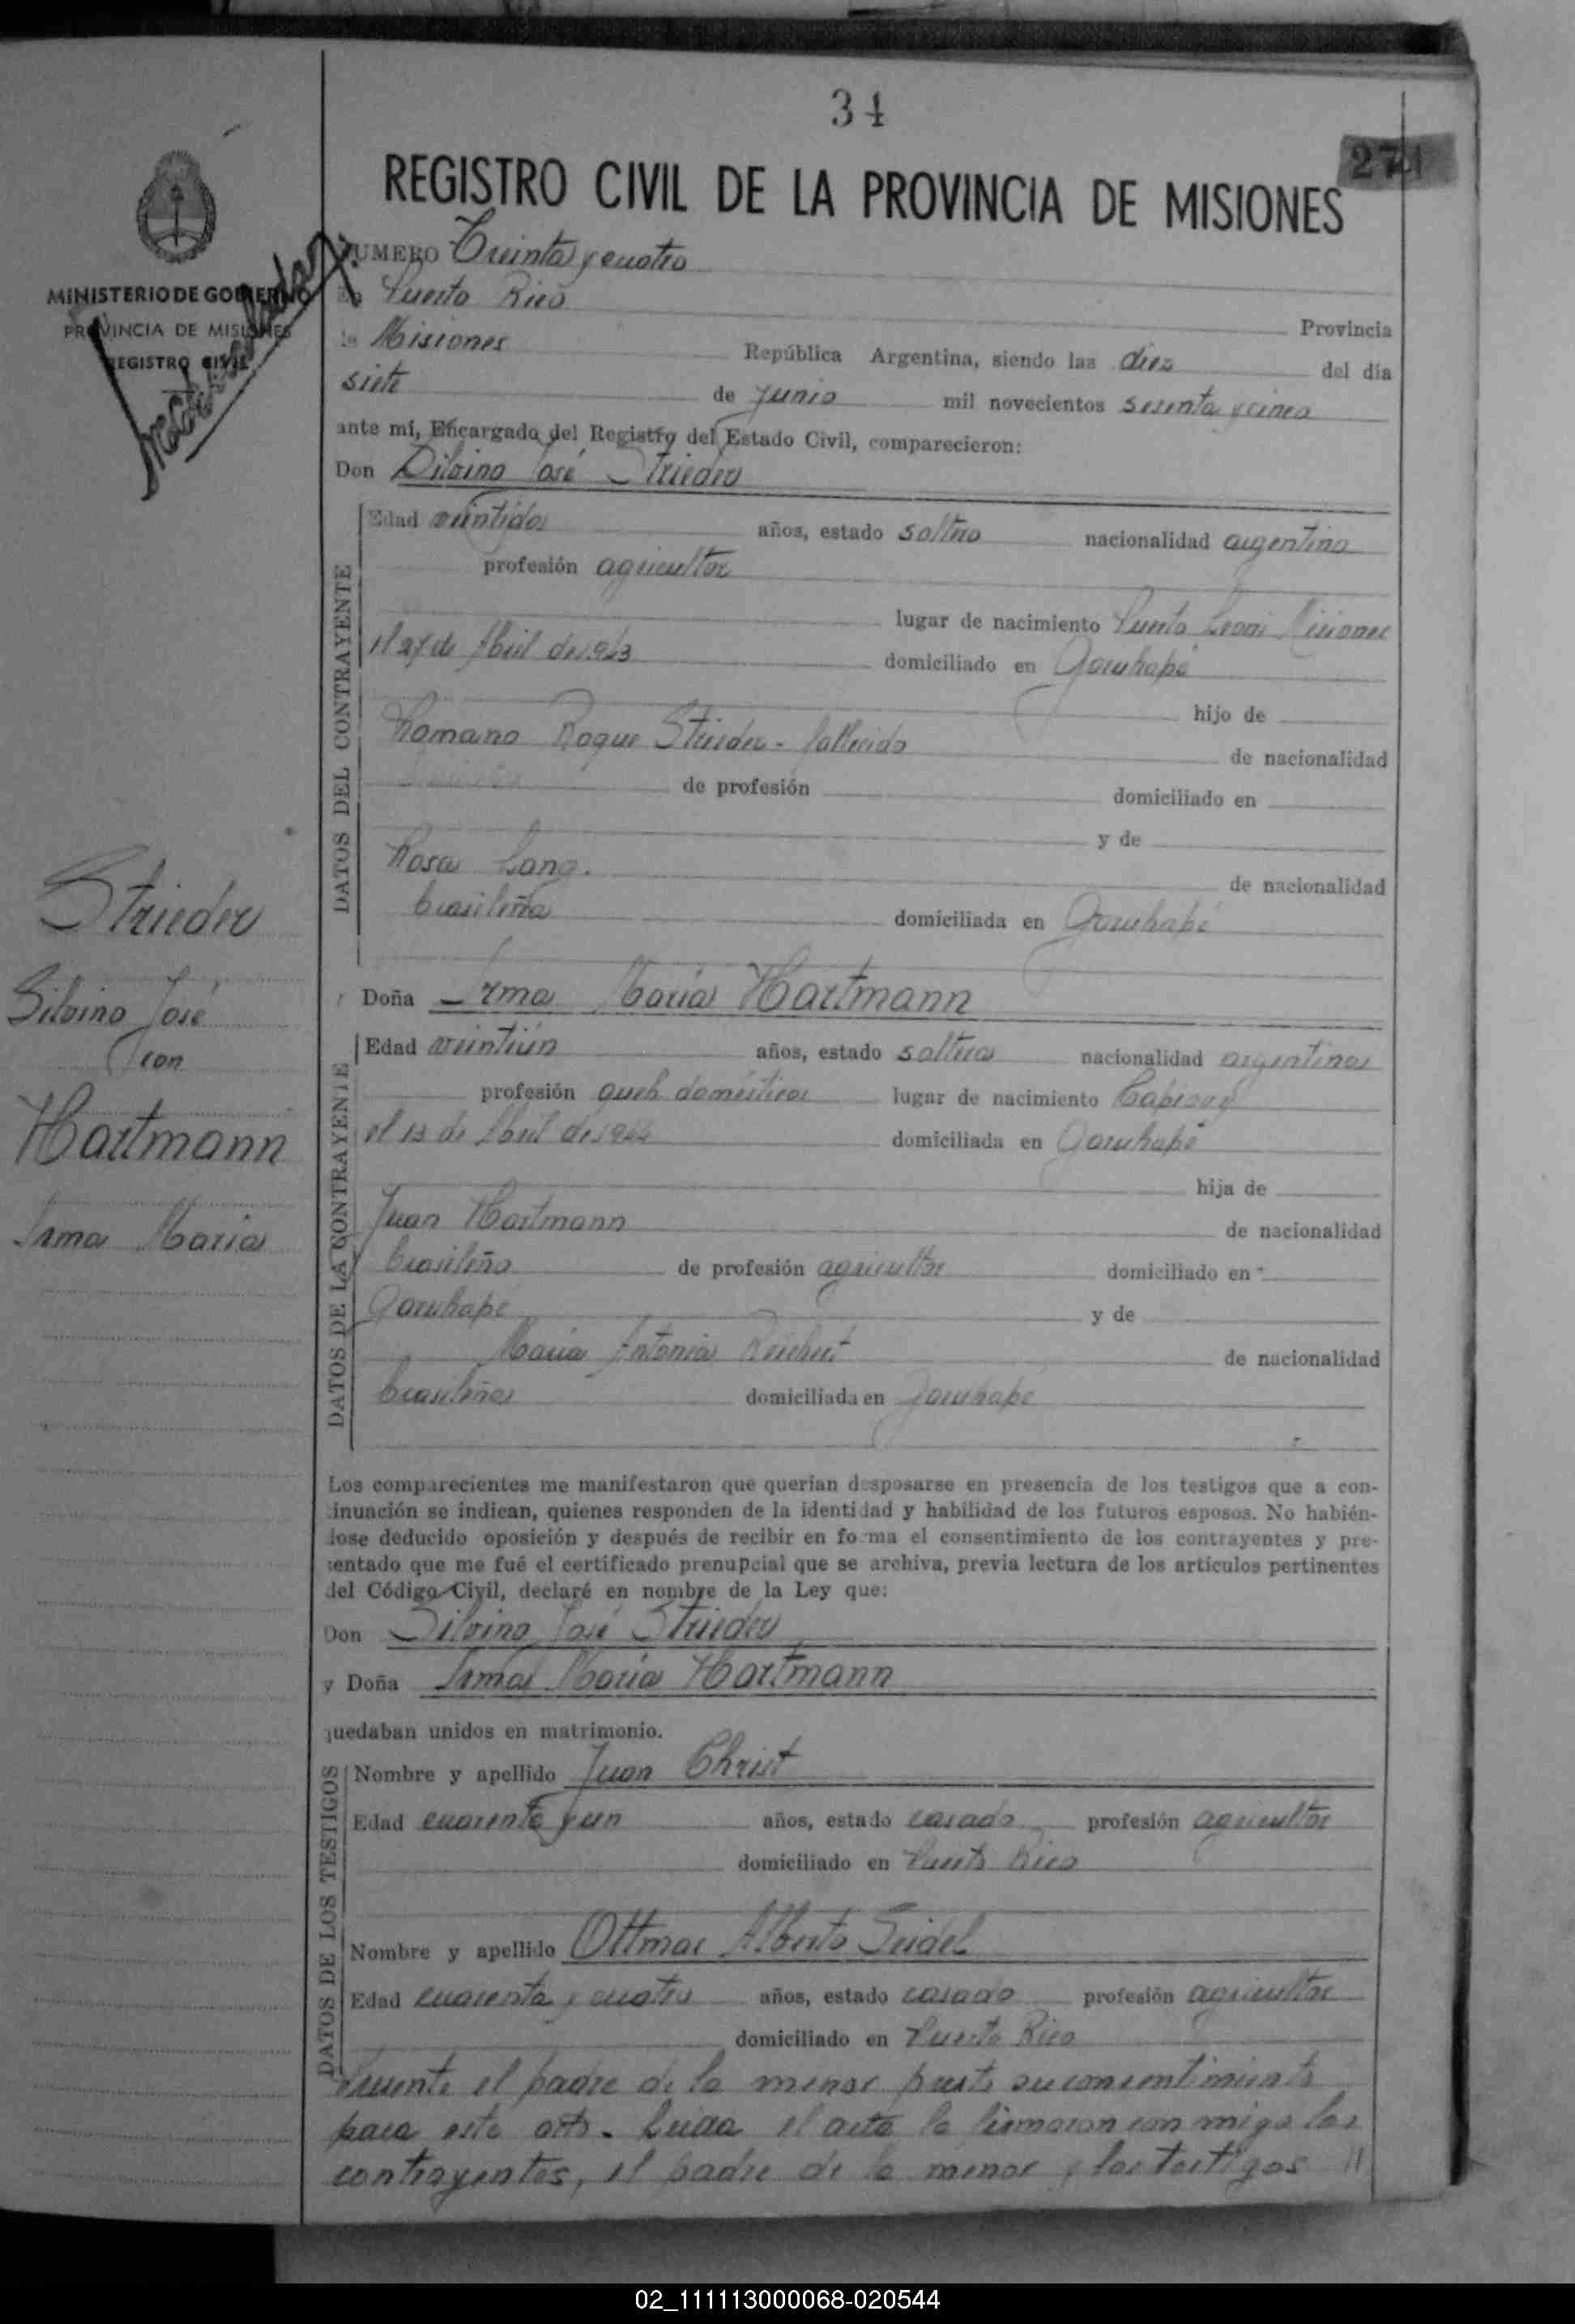 34
274
REGISTRO CIVIL DE LA PROVINCIA DE MISIONES
MINISTERIO DE GOBIERNO
PROVINCIA DE MISIONES
REGISTRO CIVIL
NUMERO Treinta y cuatro
En Puerto Rico
Provincia
de Misiones República Argentina, siendo las diez del día
siete de junio mil novecientos sesenta y cinco
ante mí, Encargado del Registro del Estado Civil, comparecieron:
Don Silvino José Strieder
DATOS DEL CONTRAYENTE
Edad veintidos años, estado soltero nacionalidad argentina
profesión agricultor
lugar de nacimiento Puerto Leoni Misiones
el 27 de Abril de 1943 domiciliado en Garuhapé
hijo de
Romano Roque Strieder - fallecido
de nacionalidad
de profesión domiciliado en
y de
Rosa Lang.
de nacionalidad
brasileña domiciliada en Garuhapé
Doña Irma María Hartmann
DATOS DE LA CONTRAYENTE
Edad veintiún años, estado soltera nacionalidad argentina
profesión queh domésticos lugar de nacimiento Capioví
el 13 de Abril de 1944 domiciliada en Garuhapé
hija de
Juan Hartmann
de nacionalidad
brasileña de profesión agricultor domiciliado en
Garuhapé y de
María Antonia Reichert
de nacionalidad
brasileña domiciliada en Garuhapé
Los comparecientes me manifestaron que querían desposarse en presencia de los testigos que a con-
tinuación se indican, quienes responden de la identidad y habilidad de los futuros esposos. No habién-
dose deducido oposición y después de recibir en forma el consentimiento de los contrayentes y pre-
sentado que me fué el certificado prenupcial que se archiva, previa lectura de los artículos pertinentes
del Código Civil, declaré en nombre de la Ley que:
Don Silvino José Strieder
y Doña Irma María Hartmann
quedaban unidos en matrimonio.
DATOS DE LOS TESTIGOS
Nombre y apellido Juan Christ
Edad cuarenta y un años, estado casado profesión agricultor
domiciliado en Puerto Rico
Nombre y apellido Ottmar Alberto Seidel
Edad cuarenta y cuatro años, estado casado profesión agricultor
domiciliado en Puerto Rico
Presente el padre de la menor presta su consentimiento
para este acto. Leida el acta la firmaron conmigo los
contrayentes, el padre de la menor y los testigos //
Strieder
Silvino José
con
Hartmann
Irma María
02_111113000068-020544